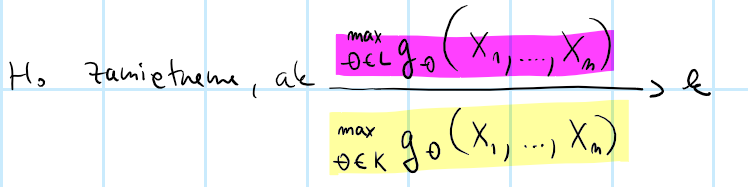 H₀ zamietneme, ak max θ∈L g_θ(X₁, ..., Xₙ) / max θ∈K g_θ(X₁, ..., Xₙ) > k